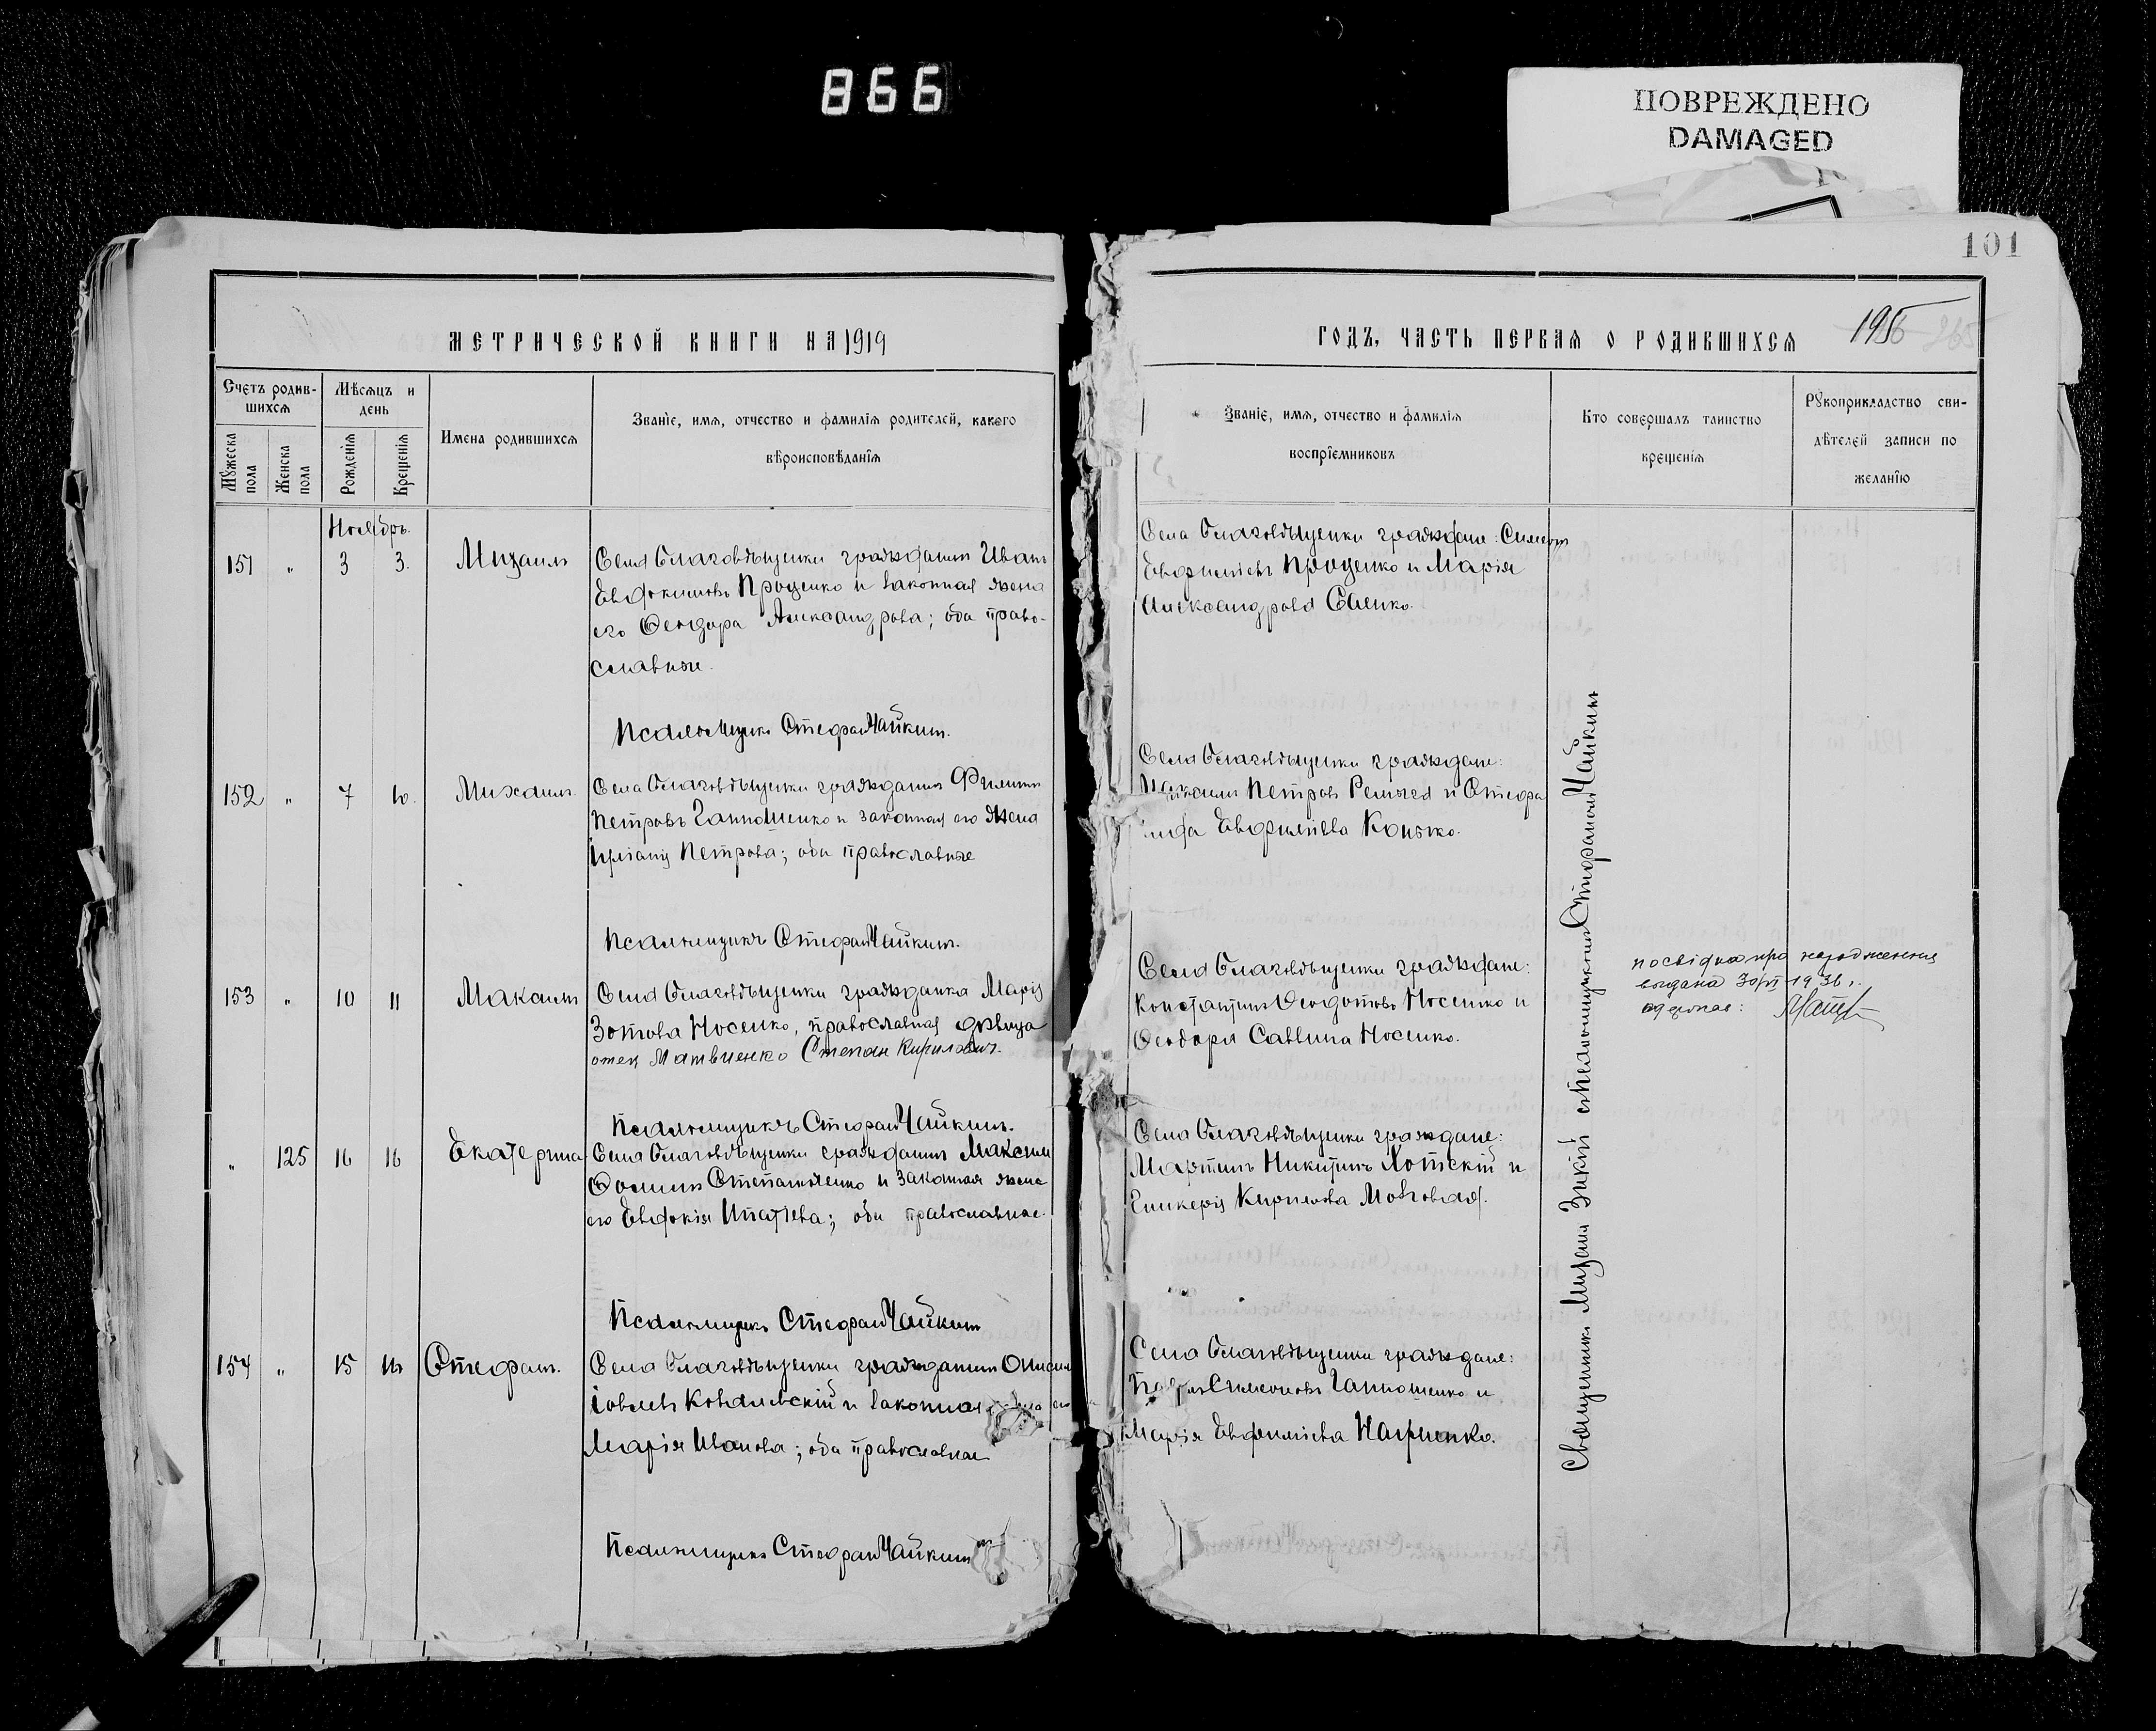 866
ПОВРЕЖДЕНО
DAMAGED
101
195
МЕТРИЧЕСКОЙ КНИГИ НА 1919
ГОДЪ, ЧАСТЬ ПЕРВАЯ О РОДИВШИХСЯ
Счетъ родив-
шихся
Мужеска пола
Женска пола
Мѣсяцъ и
день
Рожденія
Крещенія
Имена родившихся
Званіе, имя, отчество и фамилія родителей, какого
вѣроисповѣданія
Званіе, имя, отчество и фамилія
воспріемниковъ
Кто совершалъ таинство
крещенія
Рукоприкладство сви-
дѣтелей записи по
желанію
Ноябрь.
151 " 3 3. Михаилъ
Села Благовѣщенки гражданинъ Иванъ
Евдокимовъ Проценко и законная жена
его Ѳеодора Александрова; оба право-
славные.
Псаломщикъ Стефанъ Чайкинъ.
Села Благовѣщенки граждане: Симеонъ
Евфиміевъ Проценко и Марія
Александрова Саенко.
152 " 7 10. Михаилъ.
Села Благовѣщенки гражданинъ Филиппъ
Петровъ Гапношенко и законная его жена
Петрова; оба православные
Псаломщикъ Стефанъ Чайкинъ.
Села Благовѣщенки граждане:
Петровъ и Стефа
нида Евфиміева Конько.
153 " 10 11 Максимъ
Села Благовѣщенки гражданка Марія
Зотова Носенко, православная дѣвица
отец Матвиенко Степан Кирилович.
Псаломщикъ Стефанъ Чайкинъ.
Села Благовѣщенки граждане:
Константинъ Ѳеодотовъ Носенко и
Ѳеодора Саввина Носенко.
посвідка про народження
видана 30/VI 1936 р.
одержав:
" 125 16 16 Екатерина
Села Благовѣщенки гражданинъ Максимъ
Ѳоминъ Степаненко и законная жена
его Евдокія Ипатіева; оба православные.
Псаломщикъ Стефанъ Чайкинъ
Села Благовѣщенки граждане:
Мартинъ Никитинъ Лотскій и
Гликерія Кирилова Мозговая.
154 " 15 16 Стефанъ.
Села Благовѣщенки гражданинъ
Іовлевъ Ковалевскій и законная жена его
Марія Иванова; оба православные
Псаломщикъ Стефанъ Чайкинъ
Села Благовѣщенки граждане:
Симеоновъ Гапношенко и
Марія Евфиміева
Священникъ Михаилъ съ псаломщикомъ Стефаномъ Чайкинымъ